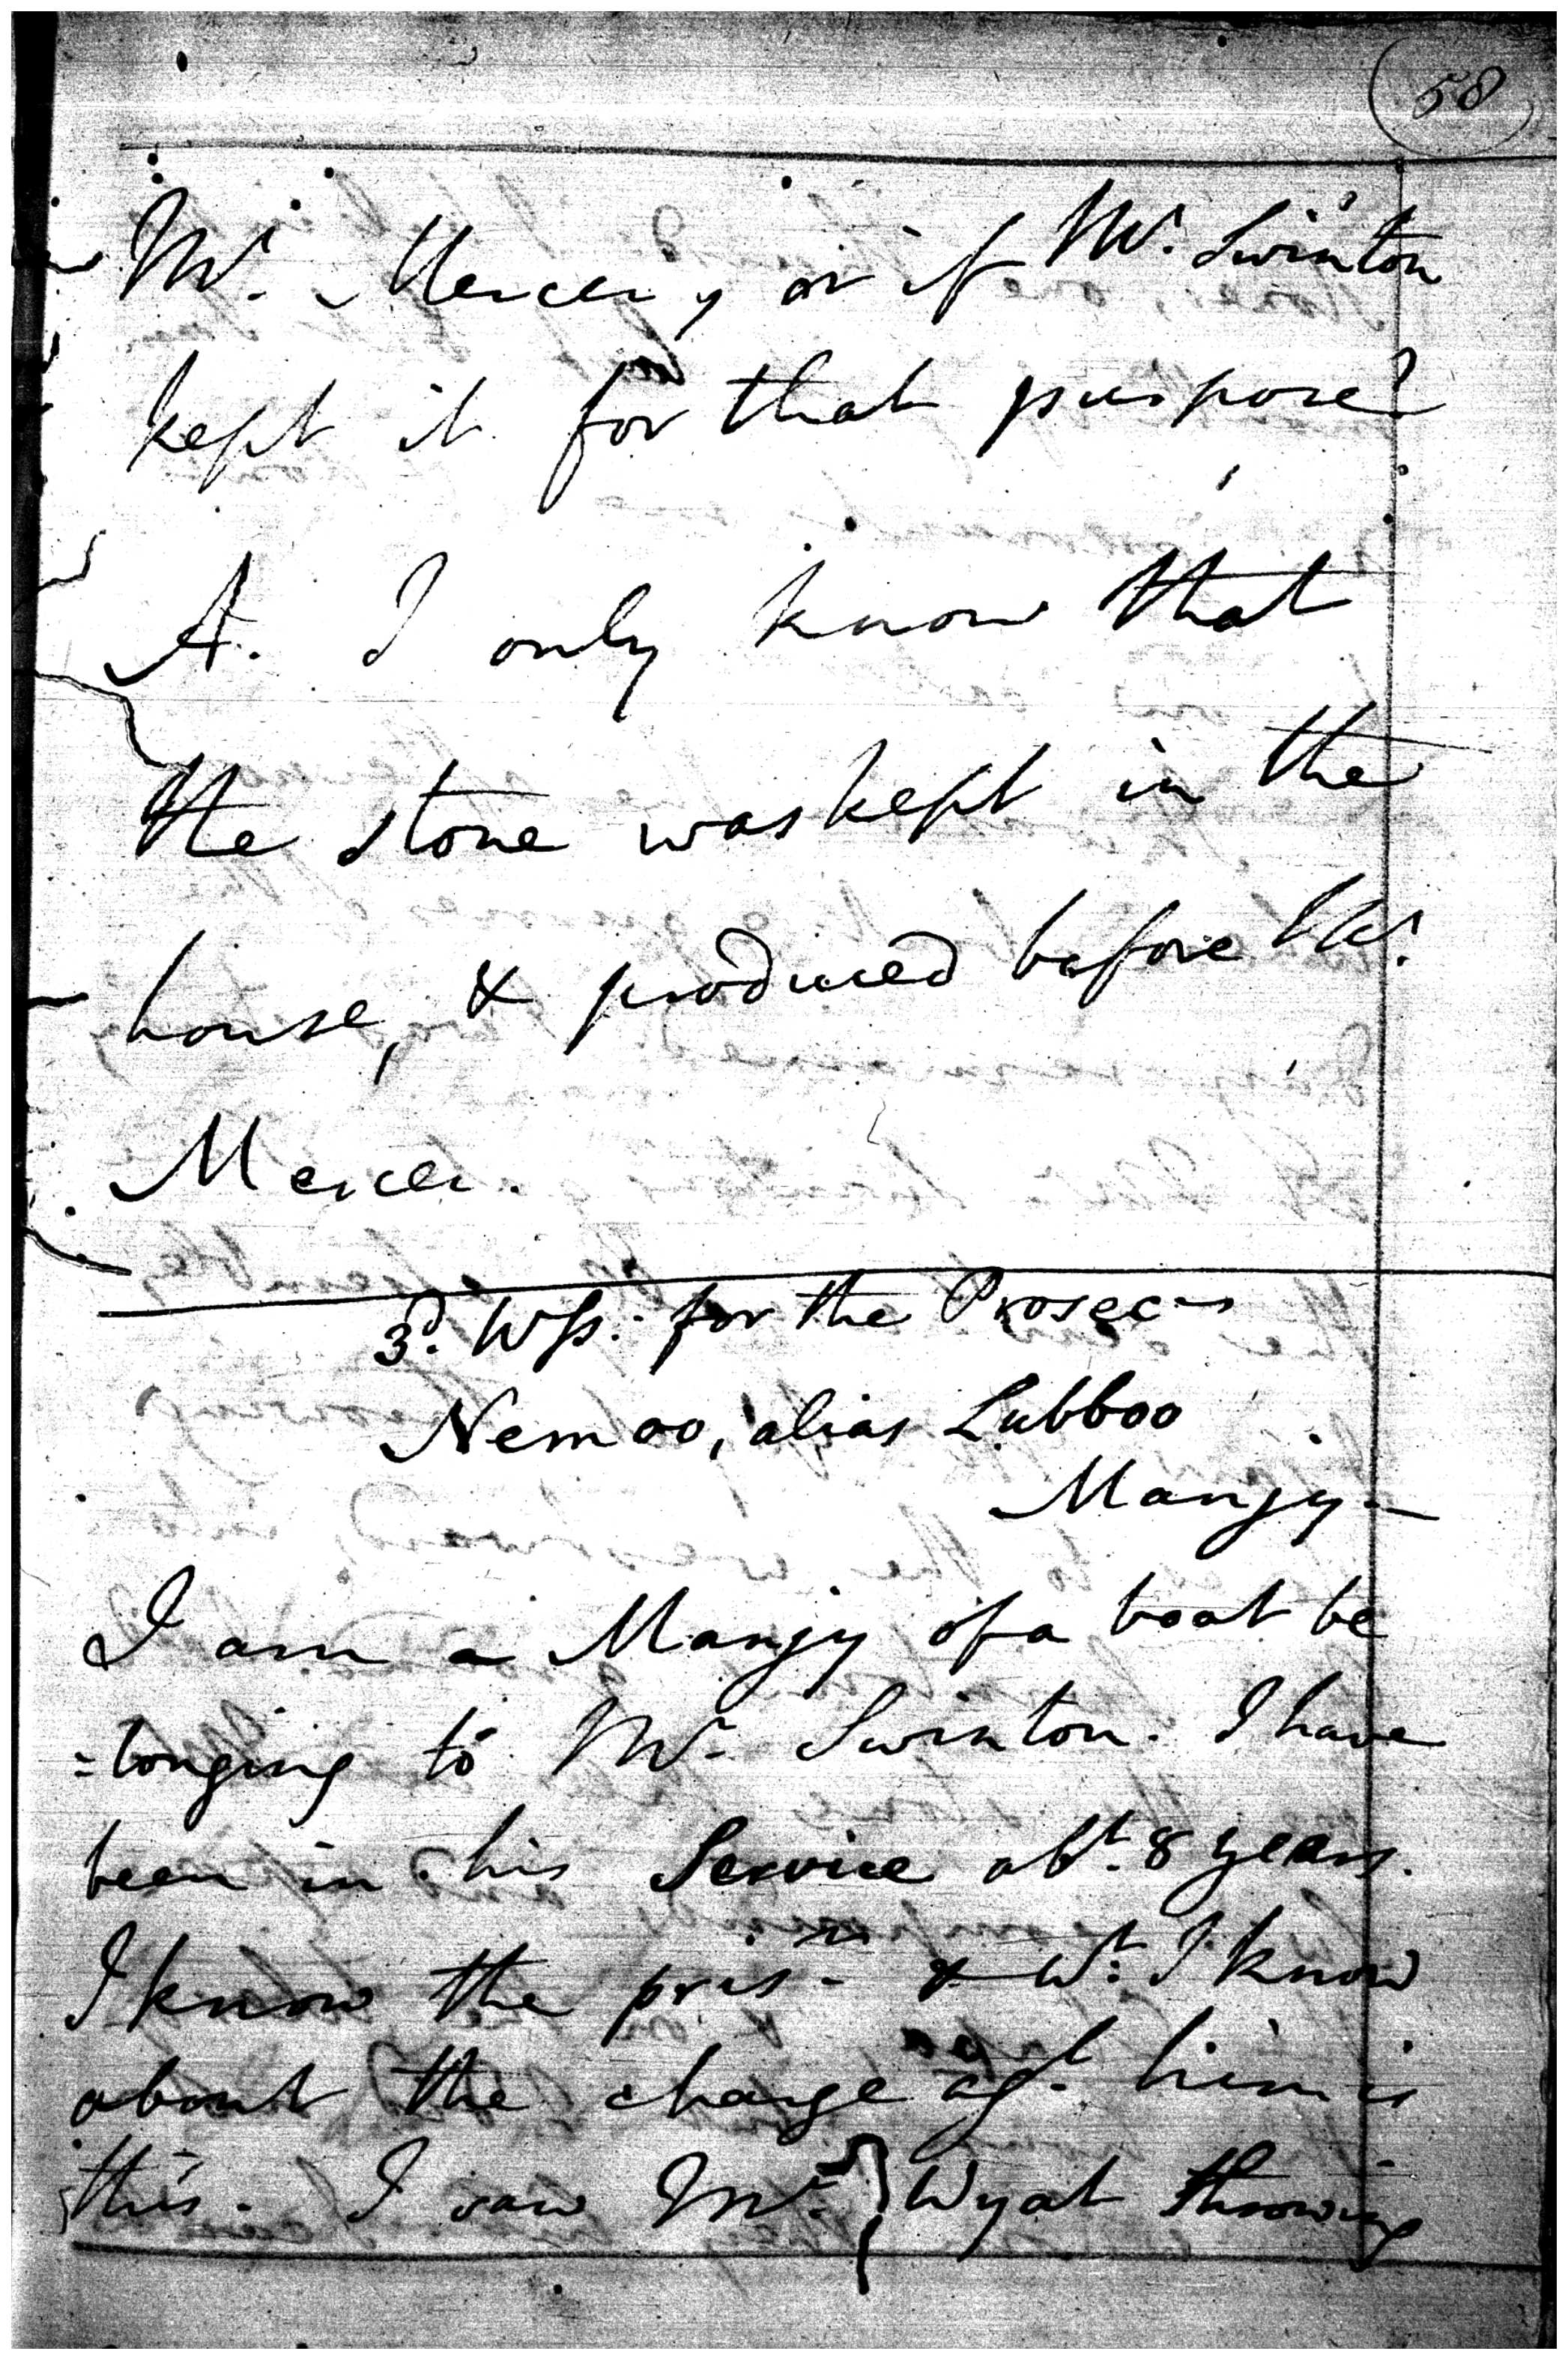 58
Mr. Mercer, or if Mr. Swinton
kept it for that purpose?
A. I only know that
the stone was kept in the
house, & produced before Mr.
Mercer.
3d. Wss: for the Prosec-
Nemoo, alias Lubboo
Manjy—
I am a Manjy of a boat be
=longing to Mr. Swinton. I have
been in his Service abt. 8 years.
I know the pris- & Wt. I know
about the charge agt. him is
this. I saw Mr. Wyat throwing